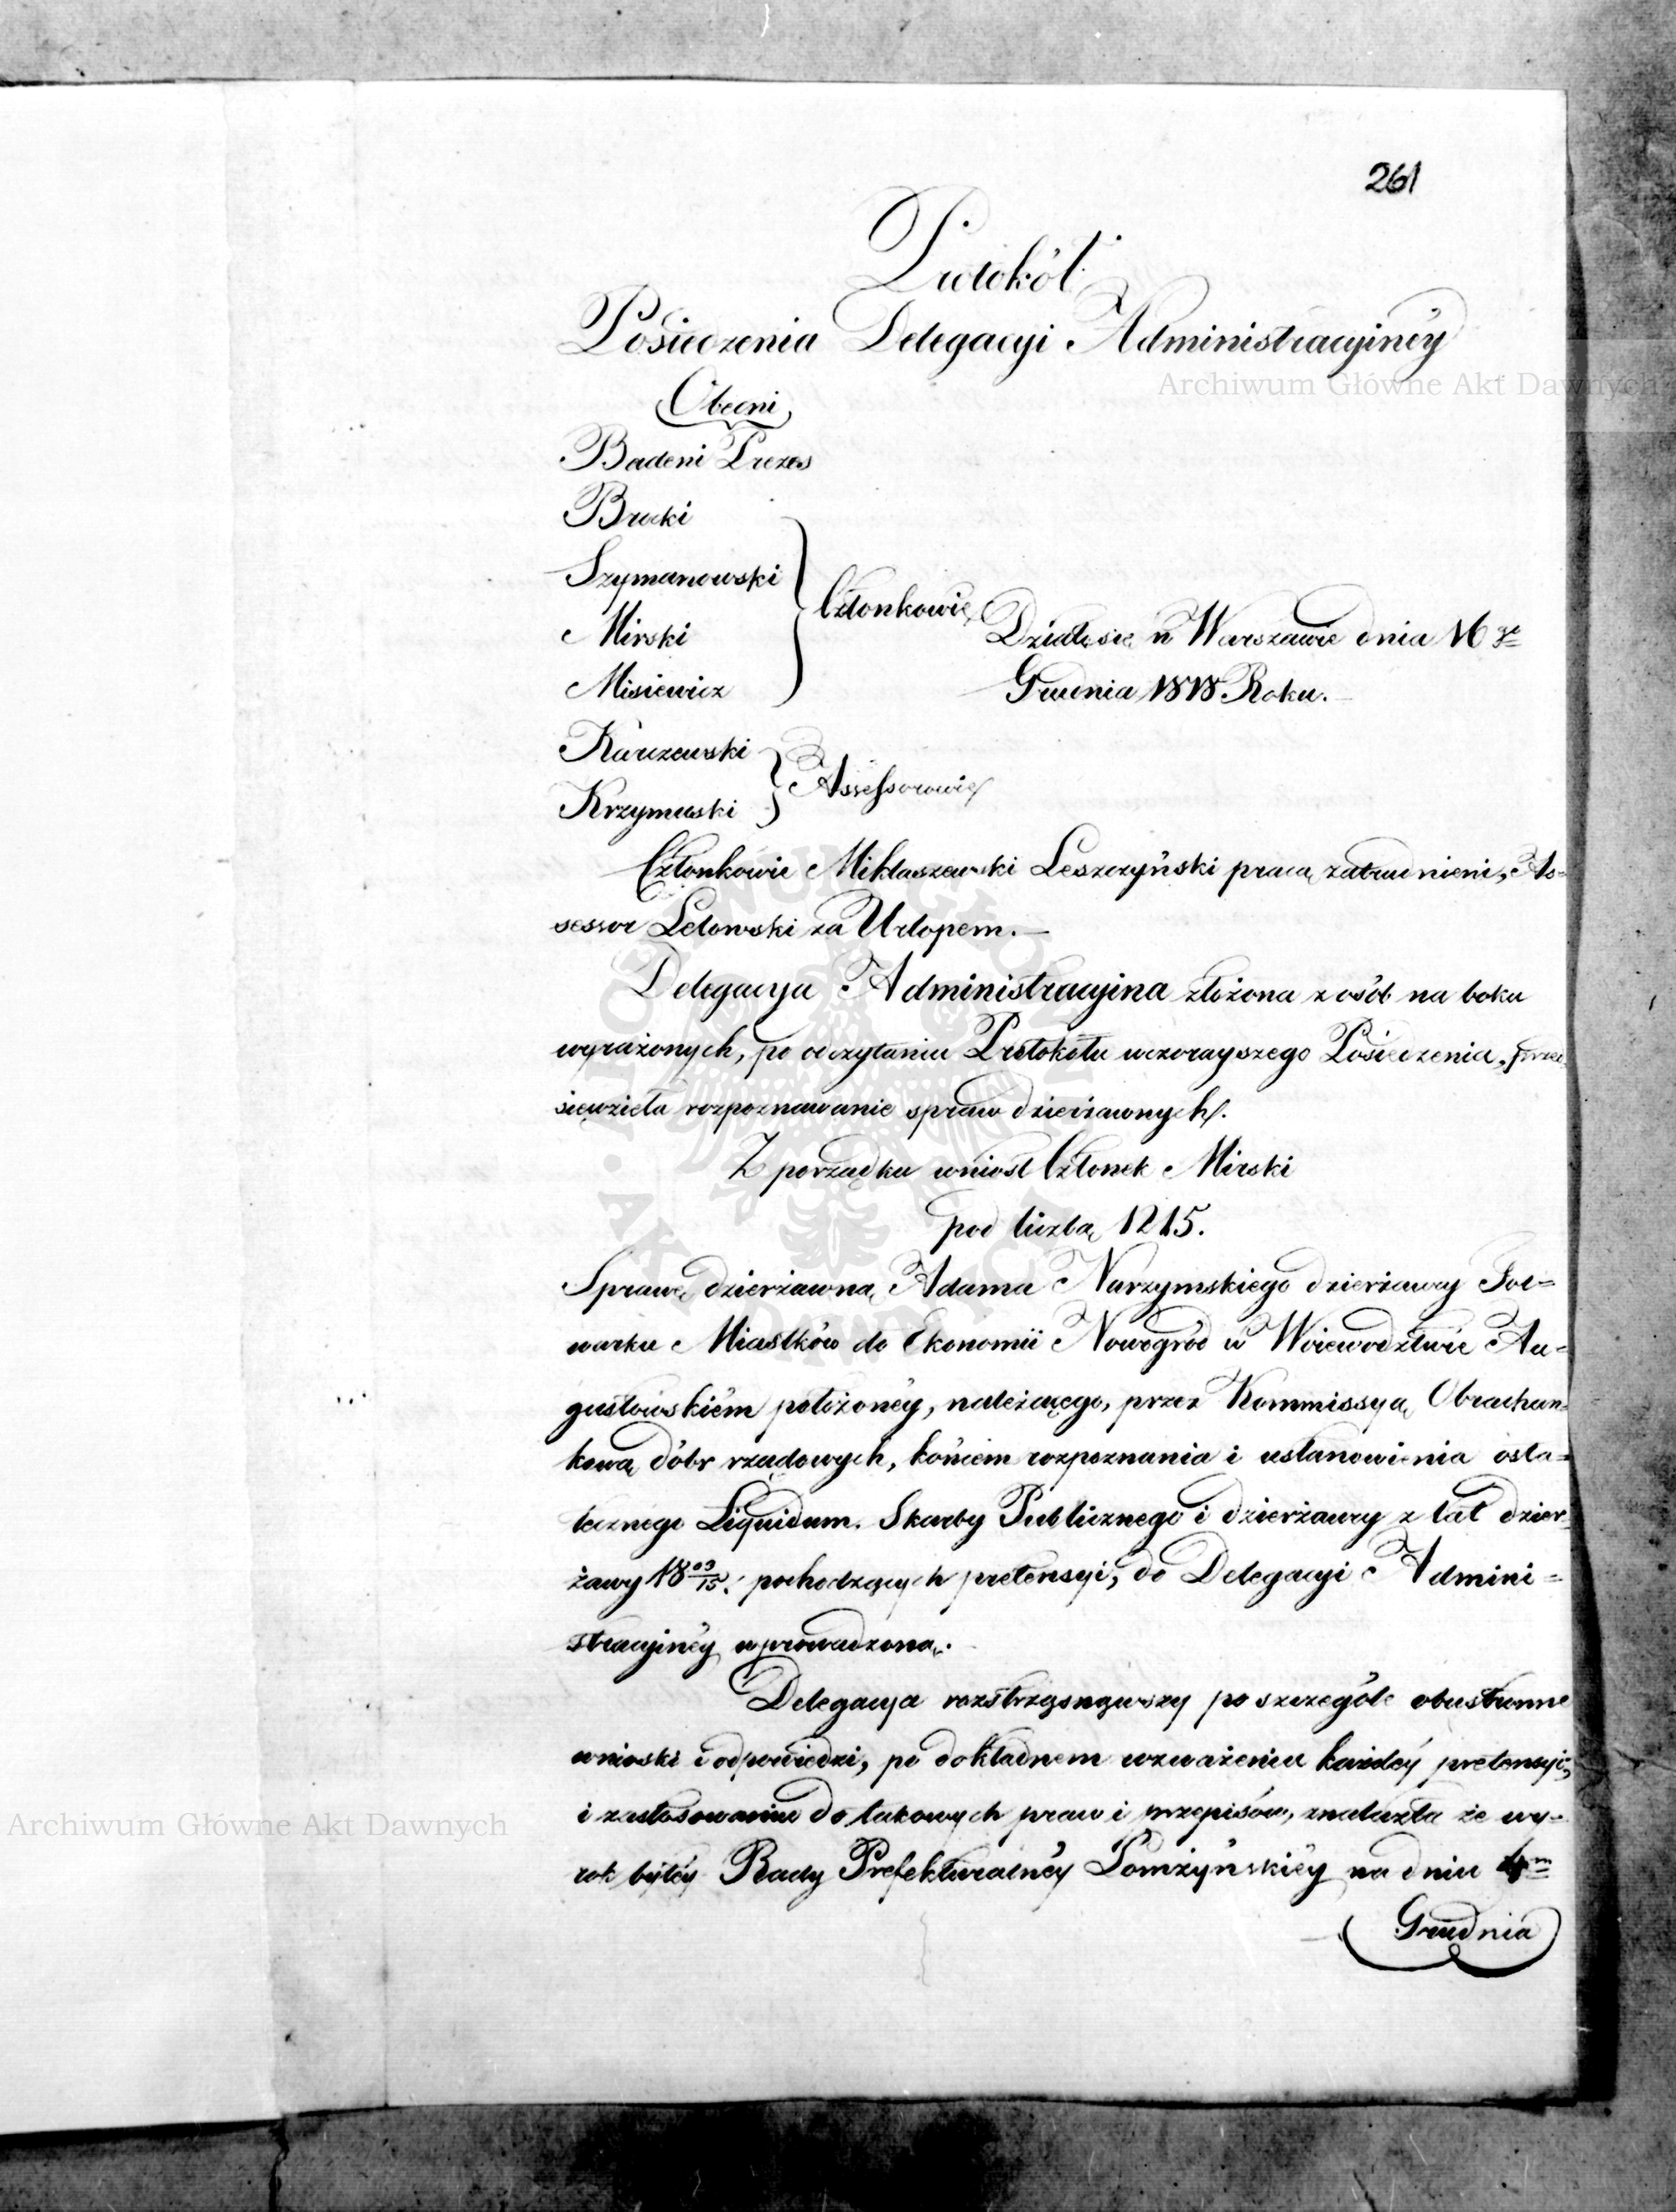 261
Protokół
Posiedzenia Delegacyi Administracyinéy
Archiwum Główne Akt Dawnych
Obecni
Badeni Prezes
Brocki
Szymanowski
Mirski
Misiewicz
Członkowie
Działo się w Warszawie dnia 16go
Grudnia 1818 Roku.
Karczewski
Krzymuski
Assessorowie
Członkowie Miklaszewski Leszczyński pracą zatrudnieni, As=
sessor Letowski za Urlopem.
Delegacya Administracyina złożona z osób na boku
wyrażonych, po odczytaniu Protokołu wczorayszego Posiedzenia, prze
sięwzięła rozpoznawanie spraw dzierżawnych.
Z porządku wniósł Członek Mirski
pod liczbą 1215.
Sprawę dzierżawną Adama Narzymskiego dzierżawcy Fol=
warku Miastków do Ekonomii Nowogród w Woiewodztwie Au=
gustowskiém położonéy, należącego, przez Kommissyą Obrachun=
kową dóbr rządowych, końcem rozpoznania i ustanowienia osta=
tecznego Liquidum. Skarbu Publicznego i dzierżawcy z lat dzier=
żawy 18 09/15. pochodzących pretensyi, do Delegacyi Admini=
stracyinéy wprowadzoną.
Delegacya rozstrząsnąwszy po szczególe obustronne
wnioski i odpowiedzi, po dokładnem wzważeniu każdéy pretensyi,
i zastosowaniu do takowych praw i przepisów, znalazła że wy=
Archiwum Główne Akt Dawnych
rok byłéy Rady Prefekturalnéy Łomżyńskiéy na dniu 4m
Grudnia